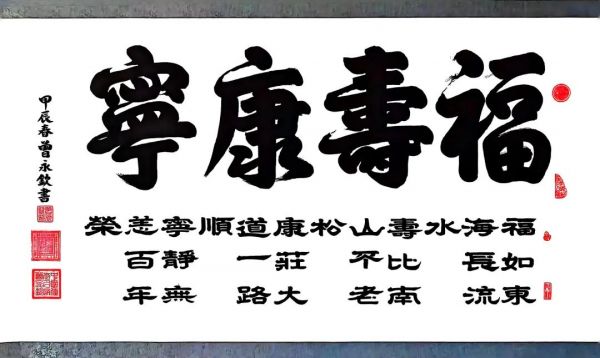 福壽康寧
福如東
海長流
水
壽比南
山不老
松
康莊大
道一路
順
寧靜無
恙百年
榮
甲辰春曾永欽書